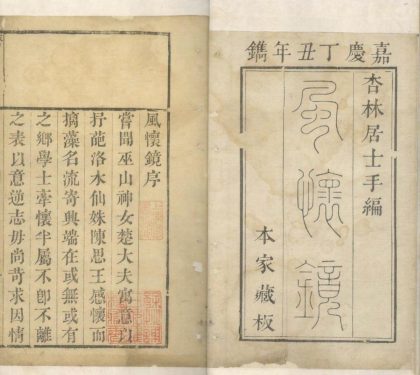 嘉慶丁丑年鐫
杏林居士手編
風懷鏡
本家藏板
風懷鏡序
嘗聞巫山神女楚大夫寓意以
抒葩洛水仙姝陳思王感懷而
摛藻名流寄興端在或無或有
之鄉學士牽懷半屬不卽不離
之表以意逆志毋尚苛求因情